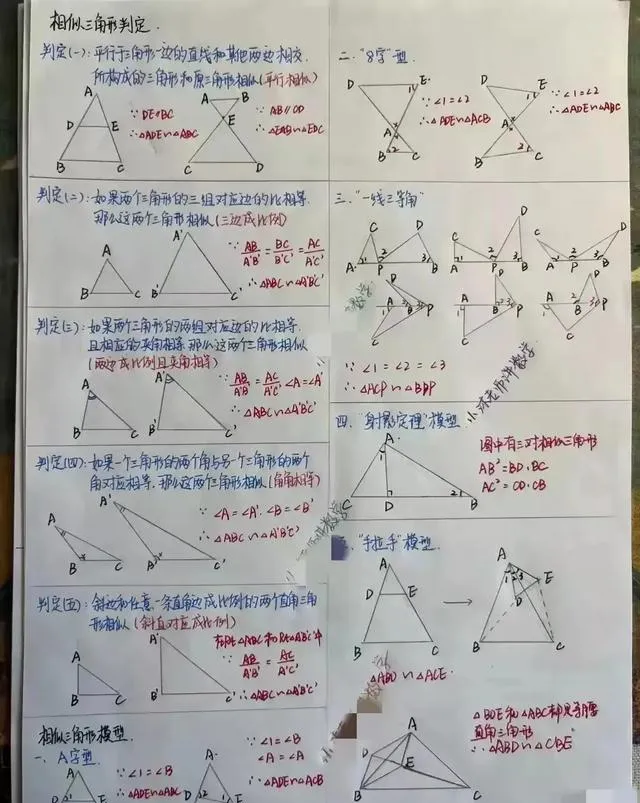 相似三角形判定.
判定(一):平行于三角形一边的直线和其他两边相交,
所构成的三角形和原三角形相似(平行相似)
A
D
E
B
C
∵ DE∥BC
∴ △ADE∽△ABC
A
B
E
C
D
∵ AB∥CD
∴ △EAB∽△EDC
判定(二):如果两个三角形的三组对应边的比相等,
那么这两个三角形相似(三边成比例)
A
B
C
A'
B'
C'
∵ AB/A'B' = BC/B'C' = AC/A'C'
∴ △ABC∽△A'B'C'
判定(三):如果两个三角形的两组对应边的比相等,
且相应的夹角相等,那么这两个三角形相似
(两边成比例且夹角相等)
A
B
C
A'
B'
C'
∵ AB/A'B' = AC/A'C' ∠A=∠A'
∴ △ABC∽△A'B'C'
判定(四):如果一个三角形的两个角与另一个三角形的两个
角对应相等,那么这两个三角形相似(角角相等)
A
B
C
A'
C'
∵ ∠A=∠A'. ∠B=∠B'
∴ △ABC∽△A'B'C'
判定(五):斜边和任意一条直角边成比例的两个直角三角
形相似(斜直对应成比例)
A
B
C
A'
B'
C'
在Rt△ABC和Rt△A'B'C'中
∵ AB/A'B' = AC/A'C'
∴ △ABC∽△A'B'C'
相似三角形模型.
一、A字型.
A
D
E
∵ ∠1=∠B
∴ △ADE∽△ABC
A
D
E
∵ ∠1=∠B
∠A=∠A
∴ △ADE∽△ACB
二."8字"型
D
E
1
A
2
B
C
∵ ∠1=∠2
∴ △ADE∽△ACB
D
E
1
A
2
B
C
∵ ∠1=∠2
∴ △ADE∽△ACB
三."一线三等角"
C
D
A
1
2
P
3
B
C
D
A
1
2
P
3
B
C
D
A
1
2
P
3
B
∵ ∠1=∠2=∠3
∴ △ACP∽△BDP
四."射影定理"模型
A
1
C
D
2
B
图中有三对相似三角形
AB²=BD·BC
AC²=CD·CB
"手拉手"模型.
A
D
E
B
C
→
A
1
2
3
E
D
B
C
△ABD∽△ACE.
A
D
E
B
C
△BDE和△ABC都是等腰
直角三角形
∴ △ABD∽△CBE